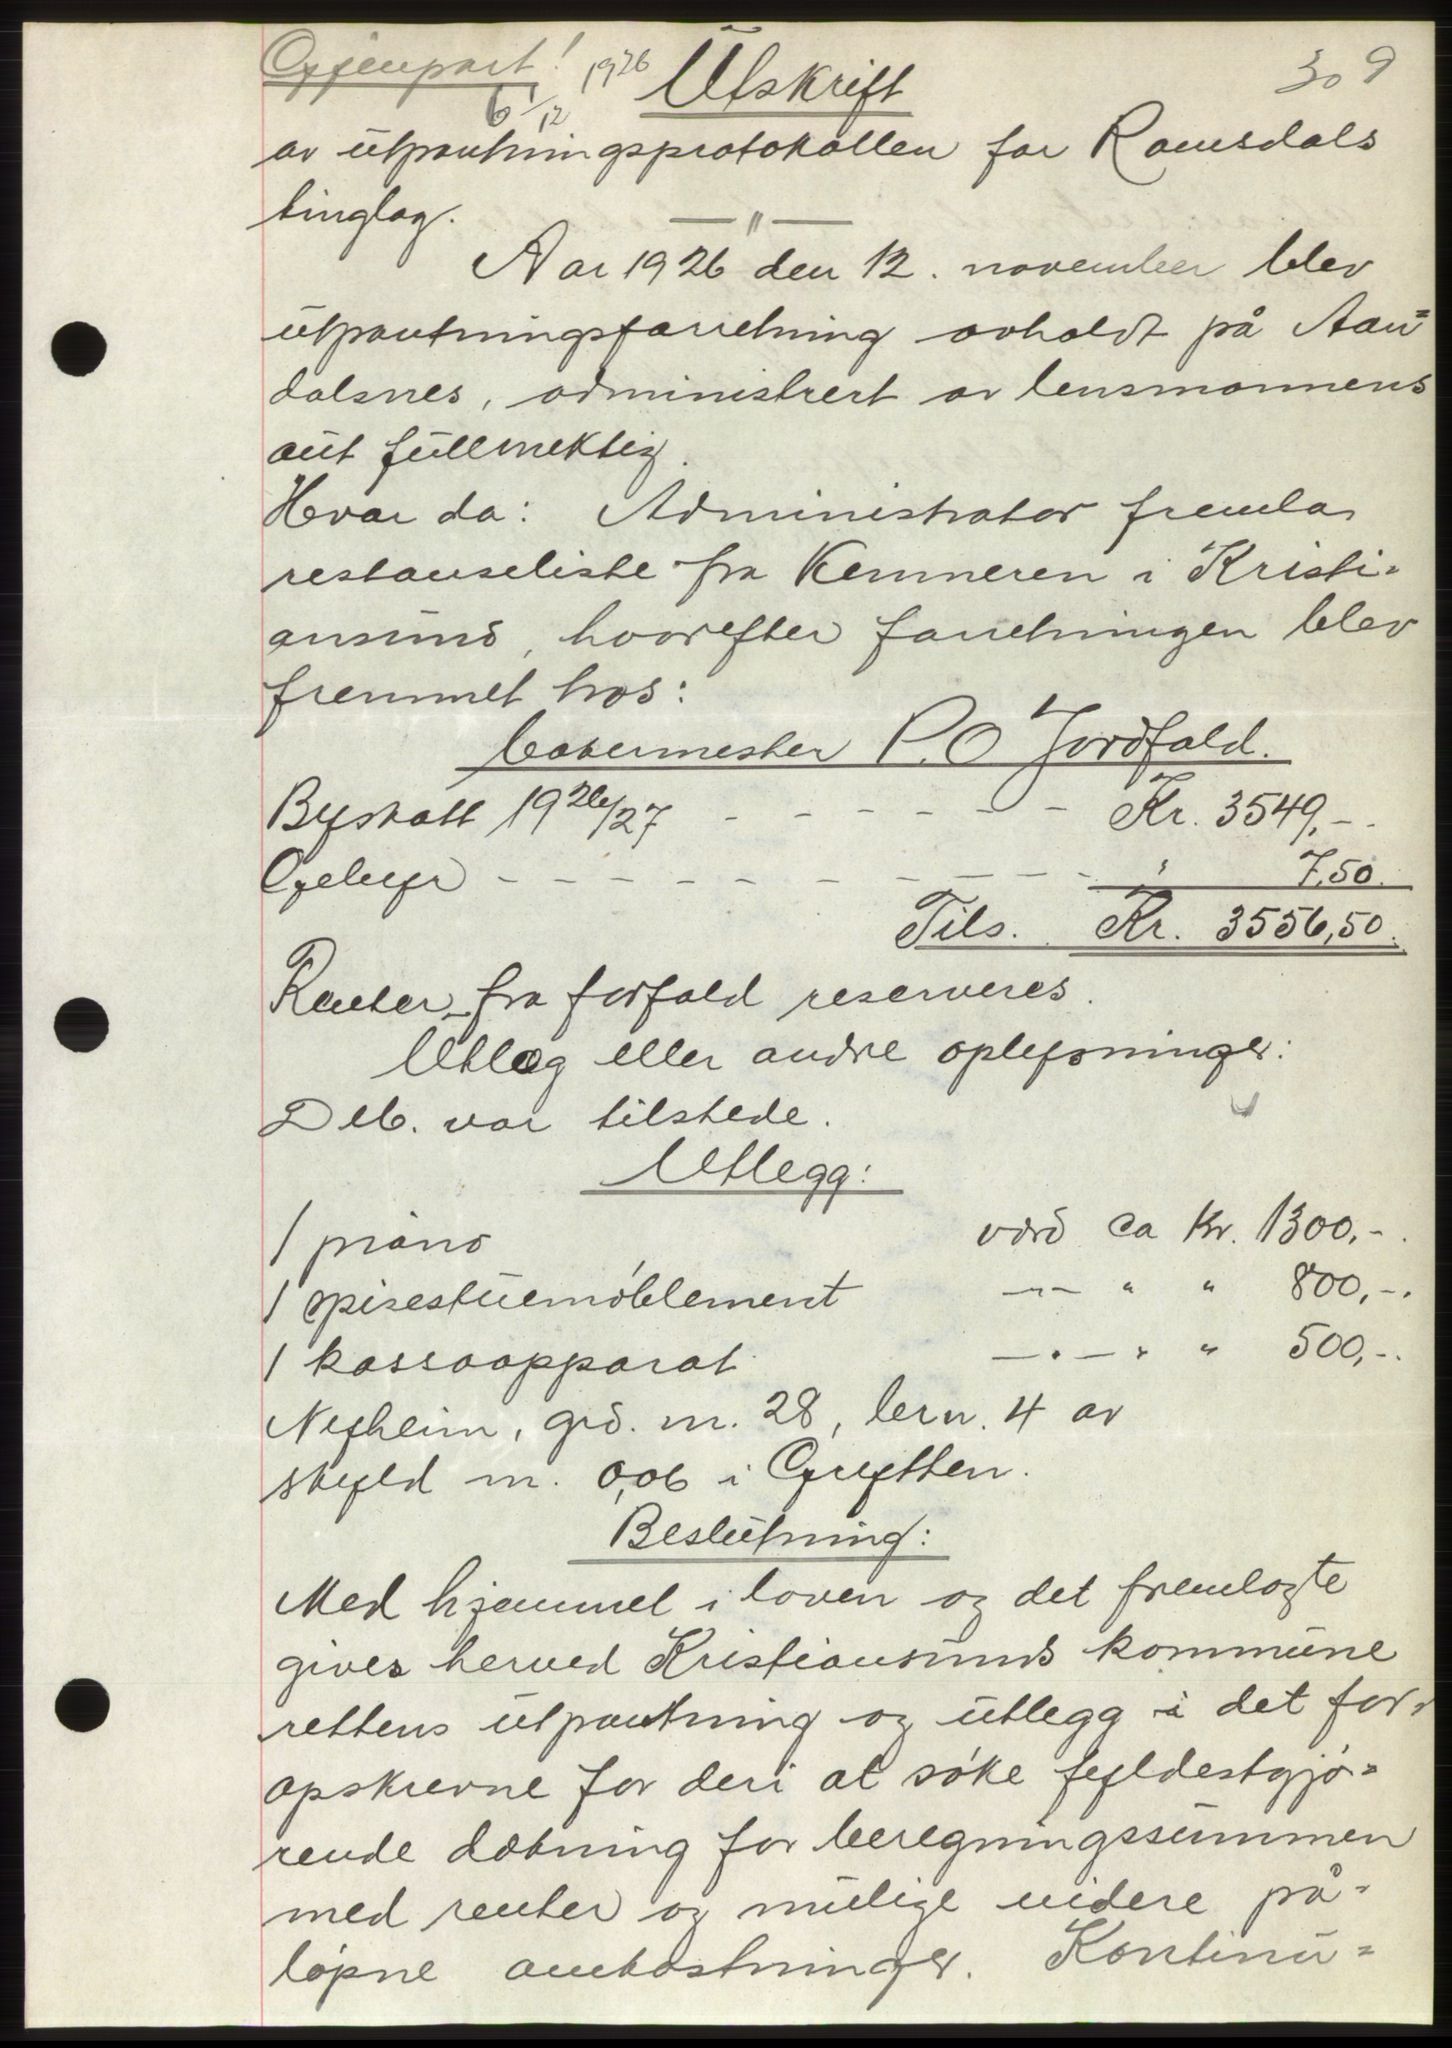 Gjenpart! 1926 6/12
309
Utskrift
av utpantningsprotokollen for Romsdals
tinglag.
Aar 1926 den 12. november blev
utpantningsforretning avholdt på Aan=
dalsnes, administrert av lensmannens
aut fullmektig.
Hvor da: Administrator fremla
restanseliste fra Kemneren i Kristi-
ansund, hvorefter forretningen blev
fremmet hos:
bakermester P.O Jordfald.
Byskatt 1926/27 - - - - - - Kr. 3549,-.
Gebyr - - - - - - - - - - - " 7,50.
Tils. Kr. 3556,50.
Renter fra forfald reserveres.
Utlæg eller andre oplysninger:
Deb. var tilstede.
Utlegg:
1 piano værd ca Kr. 1300,-.
1 spisestuemöblement -"- " " 800,-.
1 kassaapparat -"- " " 500,-.
Nyheim, grd. nr. 28, brn. 4 av
skyld m. 0,06 i Grytten.
Beslutning:
Med hjemmel i loven og det fremlagte
gives herved Kristiansunds kommune
rettens utpantning og utlegg i det for-
opskrevne for deri at söke fyldestgjö-
rende dækning for beregningssummen
med renter og mulige videre på-
löpne omkostninger. Kontinu=